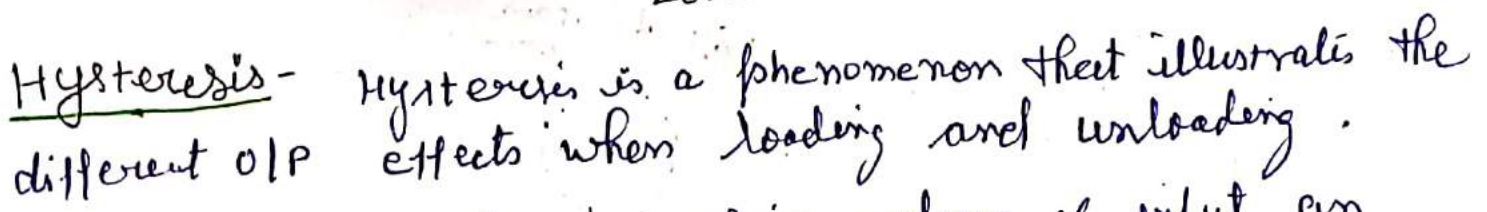 Hysteresis- Hysteresis is a phenomenon that illustrates the
different O/P effects when loading and unloading.
input can